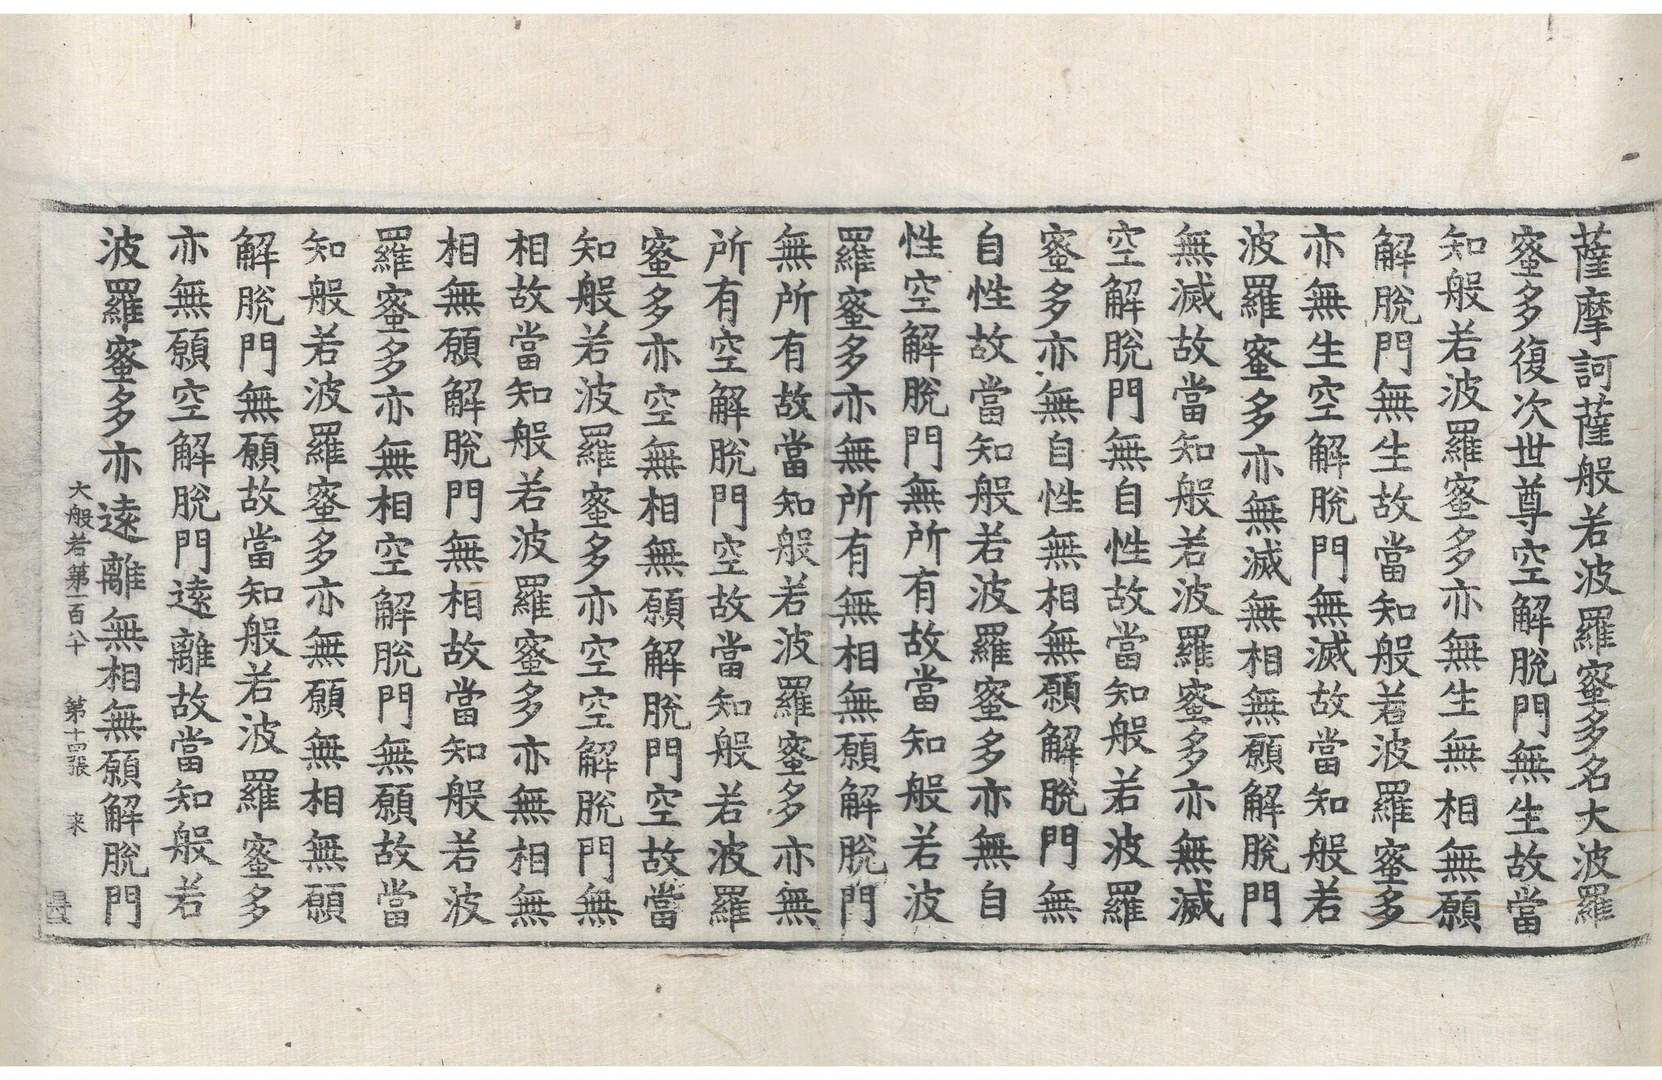 薩摩訶薩般若波羅蜜多名大波羅
蜜多復次世尊空解脫門無生故當
知般若波羅蜜多亦無生無相無願
解脫門無生故當知般若波羅蜜多
亦無生空解脫門無滅故當知般若
波羅蜜多亦無滅無相無願解脫門
無滅故當知般若波羅蜜多亦無滅
空解脫門無自性故當知般若波羅
蜜多亦無自性無相無願解脫門無
自性故當知般若波羅蜜多亦無自
性空解脫門無所有故當知般若波
羅蜜多亦無所有無相無願解脫門
無所有故當知般若波羅蜜多亦無
所有空解脫門空故當知般若波羅
蜜多亦空無相無願解脫門空故當
知般若波羅蜜多亦空空解脫門無
相故當知般若波羅蜜多亦無相無
相無願解脫門無相故當知般若波
羅蜜多亦無相空解脫門無願故當
知般若波羅蜜多亦無願無相無願
解脫門無願故當知般若波羅蜜多
亦無願空解脫門遠離故當知般若
波羅蜜多亦遠離無相無願解脫門
大般若第一百八十 第十四張 来